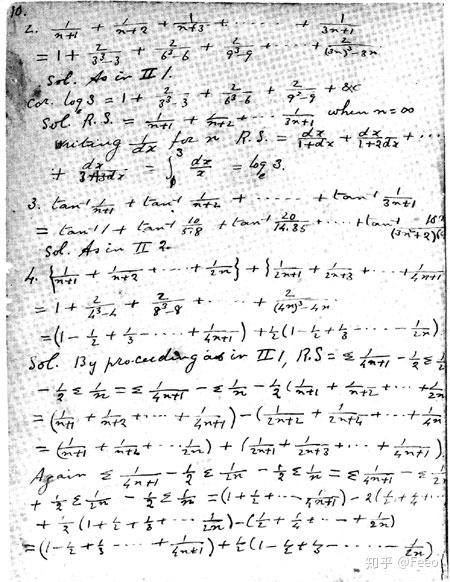 10.
2. 1/(n+1) + 1/(n+2) + 1/(n+3) + ...... + 1/(3n+1)
= 1 + 2/(3³-3) + 2/(6³-6) + 2/(9³-9) + ...... + 2/((3n)³-3n)
Sol. As in II 1.
Cor. logₑ3 = 1 + 2/(3³-3) + 2/(6³-6) + 2/(9³-9) + &c
Sol R.S. = 1/(n+1) + 1/(n+2) + ... 1/(3n+1) when n=∞
Writing 1/dx for n R.S. = dx/(1+dx) + dx/(1+2dx) + ...
+ dx/(3+dx) = ∫₁³ dx/x = logₑ3.
3. tan⁻¹ 1/(n+1) + tan⁻¹ 1/(n+2) + ... + tan⁻¹ 1/(3n+1)
= tan⁻¹ 1 + tan⁻¹ 10/(5.8) + tan⁻¹ 20/(14.35) + ... + tan⁻¹
Sol. As in II 2.
4. {1/(n+1) + 1/(n+2) + ... + 1/(2n)} + {1/(2n+1) + 1/(2n+3) + ... + 1/(4n+1)
= 1 + 2/(4³-4) + 2/(8³-8) + ...... + 2/((4n)³-4n)
= (1 - 1/2 + 1/3 - ... + 1/(4n+1)) + 1/2(1 - 1/2 + 1/3 ... - 1/(2n))
Sol. By proceeding as in II 1, R.S = Σ 1/(4n+1) - 1/2 Σ
- 1/2 Σ 1/n = Σ 1/(4n+1) - Σ 1/n - 1/2(1/(n+1) + 1/(n+2) + ... + 1/(2n)
= (1/(n+1) + 1/(n+2) + ... + 1/(4n+1)) - (1/(2n+2) + 1/(2n+4) + ... + 1/(4n)
= (1/(n+1) + 1/(n+2) + ... 1/(2n)) + (1/(2n+1) + 1/(2n+3) + ... + 1/(4n+1))
Again Σ 1/(4n+1) - 1/2 Σ 1/(2n) - 1/2 Σ 1/n = Σ 1/(4n+1) - Σ
+ 1/2 Σ 1/(2n) - 1/2 Σ 1/n = (1 + 1/2 + ... 1/(4n+1)) - 2(1/2 + 1/4 + ...
+ 1/2(1 + 1/2 + 1/3 + ... 1/(2n)) - (1/2 + 1/4 + ... + 1/(2n))
= (1 - 1/2 + 1/3 ... + 1/(4n+1)) + 1/2(1 - 1/2 + 1/3 - ...... - 1/(2n))
知乎 @Feeo